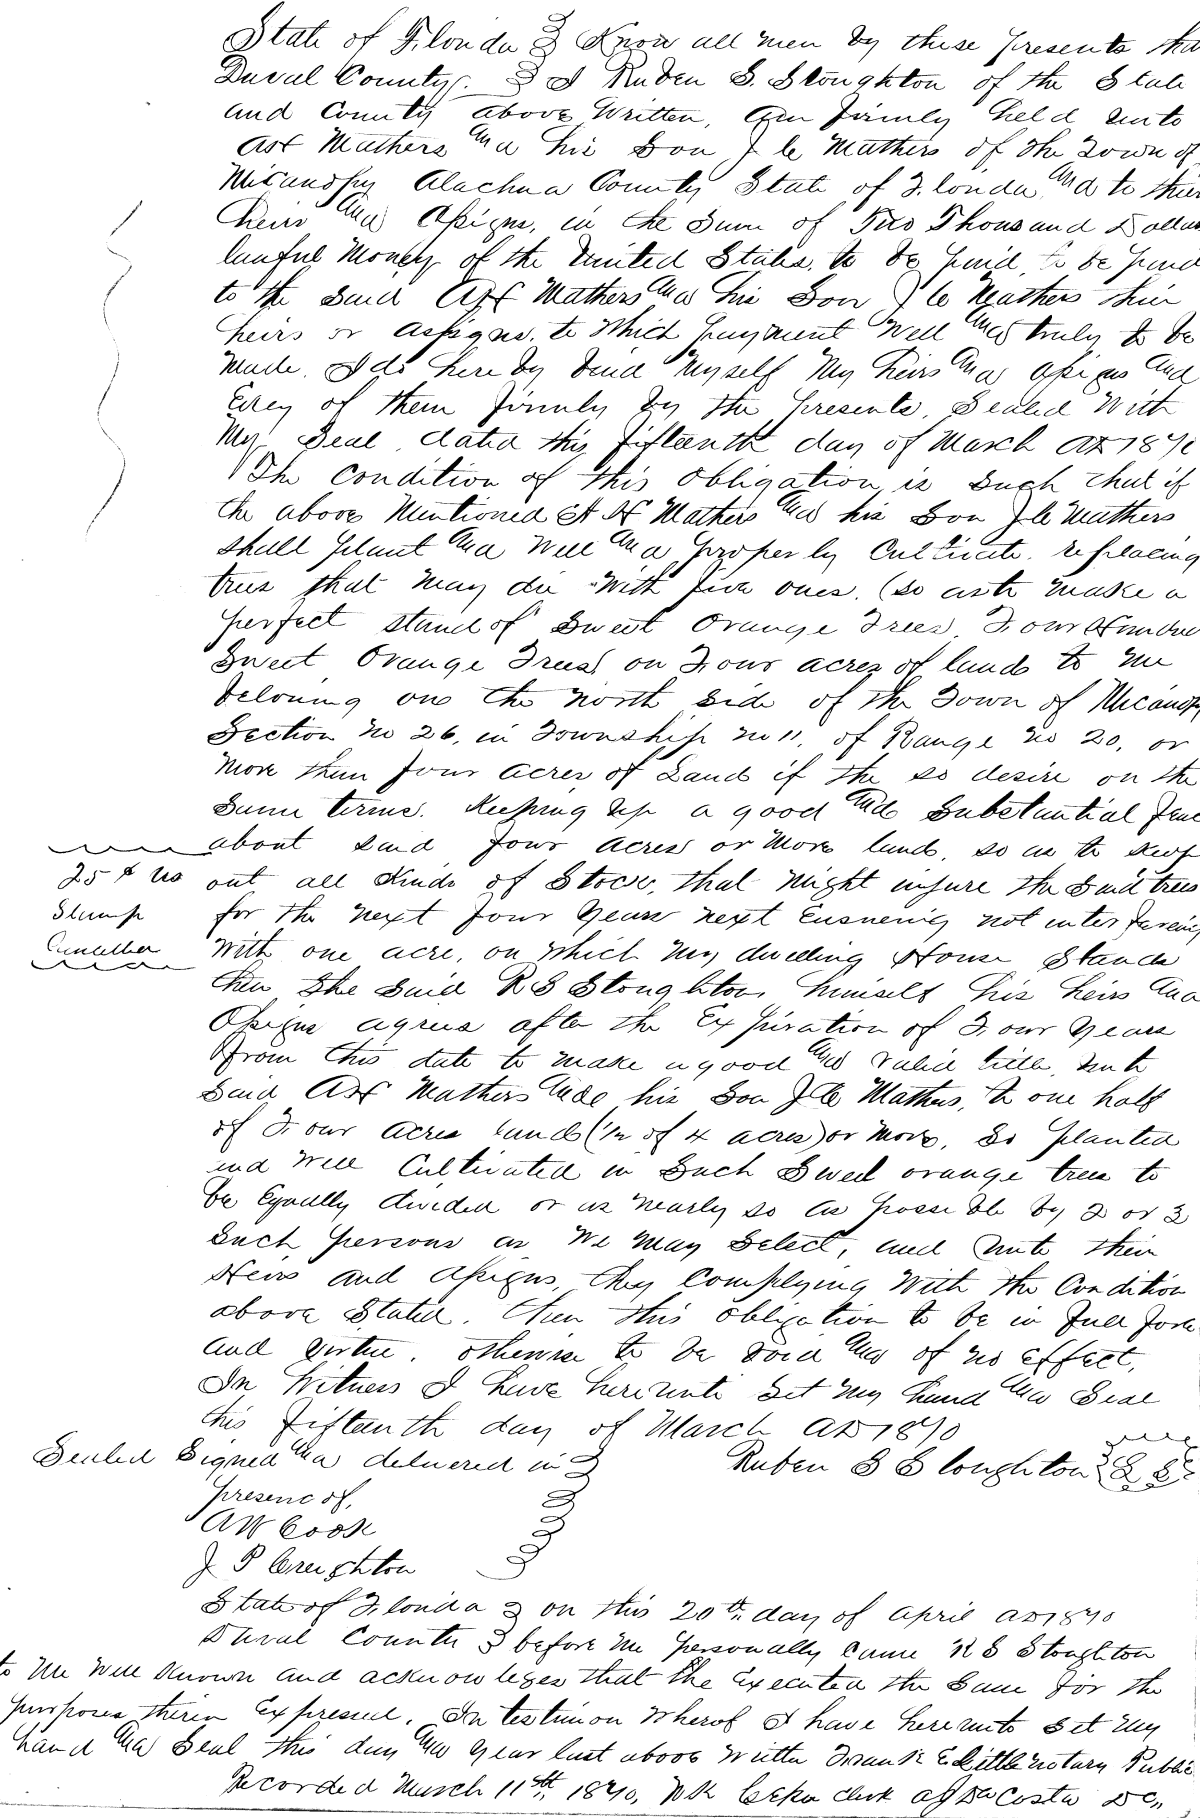 State of Florida } Know all men by these presents tha
Duval County. } I Ruben S. Stoughton of the State
and County above Written, Am firmly held unto
A H Mathers And his Son J C Mathers of the Town of
Micanopy Alachua County State of Florida And to their
heirs And Assigns, in the Sum of Two Thousand Dollars
lawful Money of the United States, to be paid, to be paid
to the said A H Mathers And his Son J C Mathers their
heirs or assigns, to Which payment Well And truly to be
Made. I do here by bind Myself My heirs And assigns And
Evey of them firmly by the presents, Sealed With
My Seal dated this fifteenth day of March AD 1870
The Condition of this obligation is Such that if
the above Mentioned A H Mathers And his Son J C Mathers
shall plant And Well And properly Cultivate, replacing
trees that May die With live ones, (so asto Make a
perfect stand of Sweet Orange Trees, Four Hundred
Sweet Orange Trees on Four acres of lands to Me
beloning on the North Side of the Town of Micanopy
Section No 26, in Township No 11, of Range No 20, or
More then four Acres of Land if the so desire on the
Same terms. Keeping up a good And Substantial fenc
about said four Acres or More lands, so as to Keep
25 ¢ US out all Kinds of Stock, that Might injure the Said trees
Stamp for the Next four Years next Ensuening not interfering
Cancelled With one acre, on Which My dwelling House Stands
then The Said R S Stoughton himself his heirs And
Assigns agrees after the Expiration of Four Years
From this date to Make a good And Valid title, unto
Said A H Mathers And his Son J C Mathers, to one half
of Four Acres lands (1/2 of 4 acres) or More, So planted
and Well Cultivated in Such Sweet orange trees to
be Equally divided or as Nearly so as possible by 2 or 3
Such persons as We May Select, and Unto their
Heirs and Assigns, they Complying With the Condition
above Stated. then this obligation to be in Full force
and Virtue. otherwise to be Void And of no effect,
In Witness I have hereunto Set My hand And Seal
this fifteenth day of March AD 1870
Sealed Signed And delivered in } Ruben S Stoughton { L S
presenc of,
A W Cook
J P Creighton
State of Florida } on this 20th day of April AD 1870
Duval County } before Me personally Came R S Stoughton
to Me Well Known and acknowleges that the Executed the Same for the
purposes therin Expressed. In testimon Wherof I have hereunto Set My
hand And Seal this day And Year last above Writtn Frank E Little notary Public
Recorded March 11th, 1870, Clerk Da Costa DC,